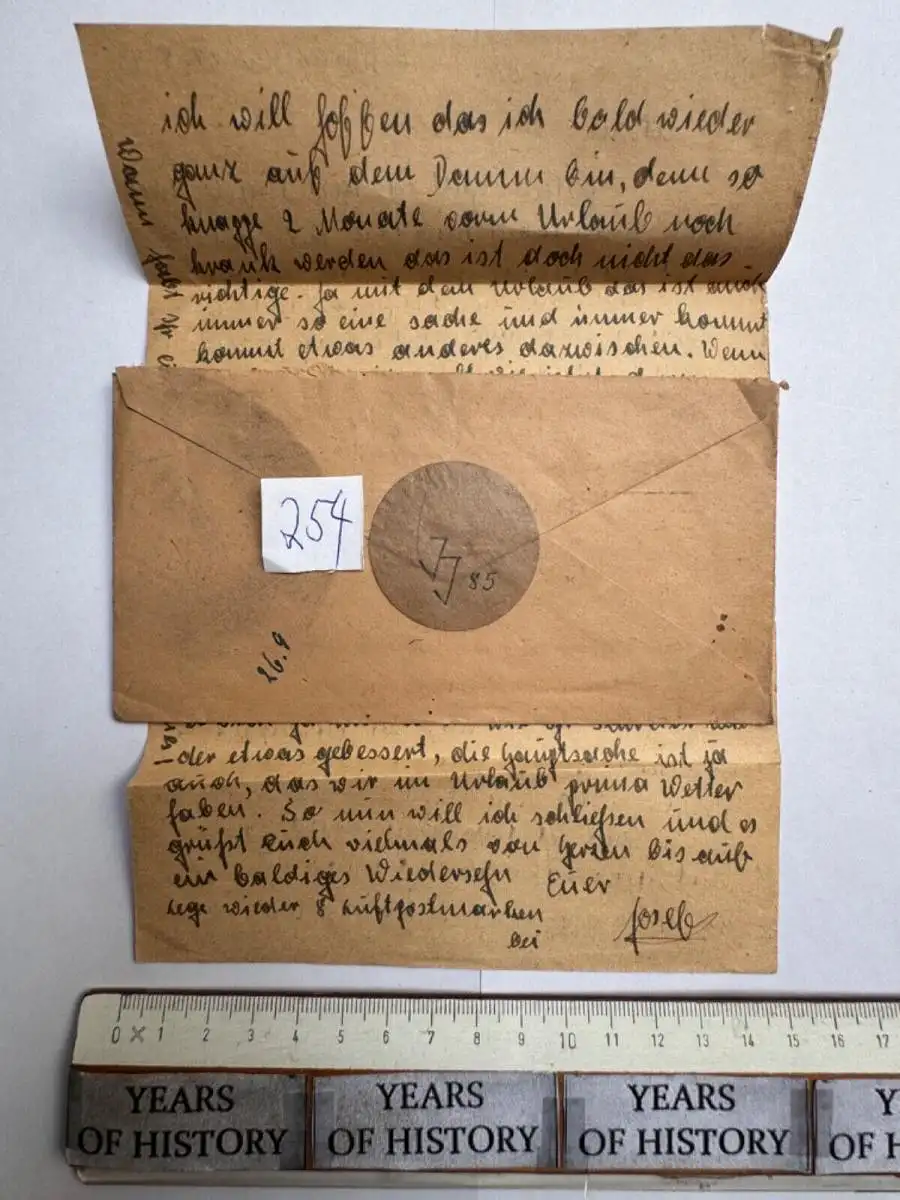 ich will hoffen das ich bald wieder
ganz auf dem Damm bin, denn so
knagge 2 Monate vorm Urlaub noch
krank werden das ist doch nicht das
richtige. Ja mit dem Urlaub das ist auch
immer so eine sache und immer kommt
kommt etwas anderes dazwischen. Wenn
Wann habt Ihr
254
85
26.9
der etwas gebessert, die Hauptsache ist ja
auch, das wir im Urlaub prima Wetter
haben. So nun will ich schließen und es
grüßt Euch vielmals von Herzen bis auf
ein baldiges Wiedersehn Euer
Lege wieder 8 Luftpostmarken
bei
Josef
0 1 2 3 4 5 6 7 8 9 10 11 12 13 14 15 16 17
YEARS OF HISTORY
YEARS OF HISTORY
YEARS OF HISTORY
Y
OF H